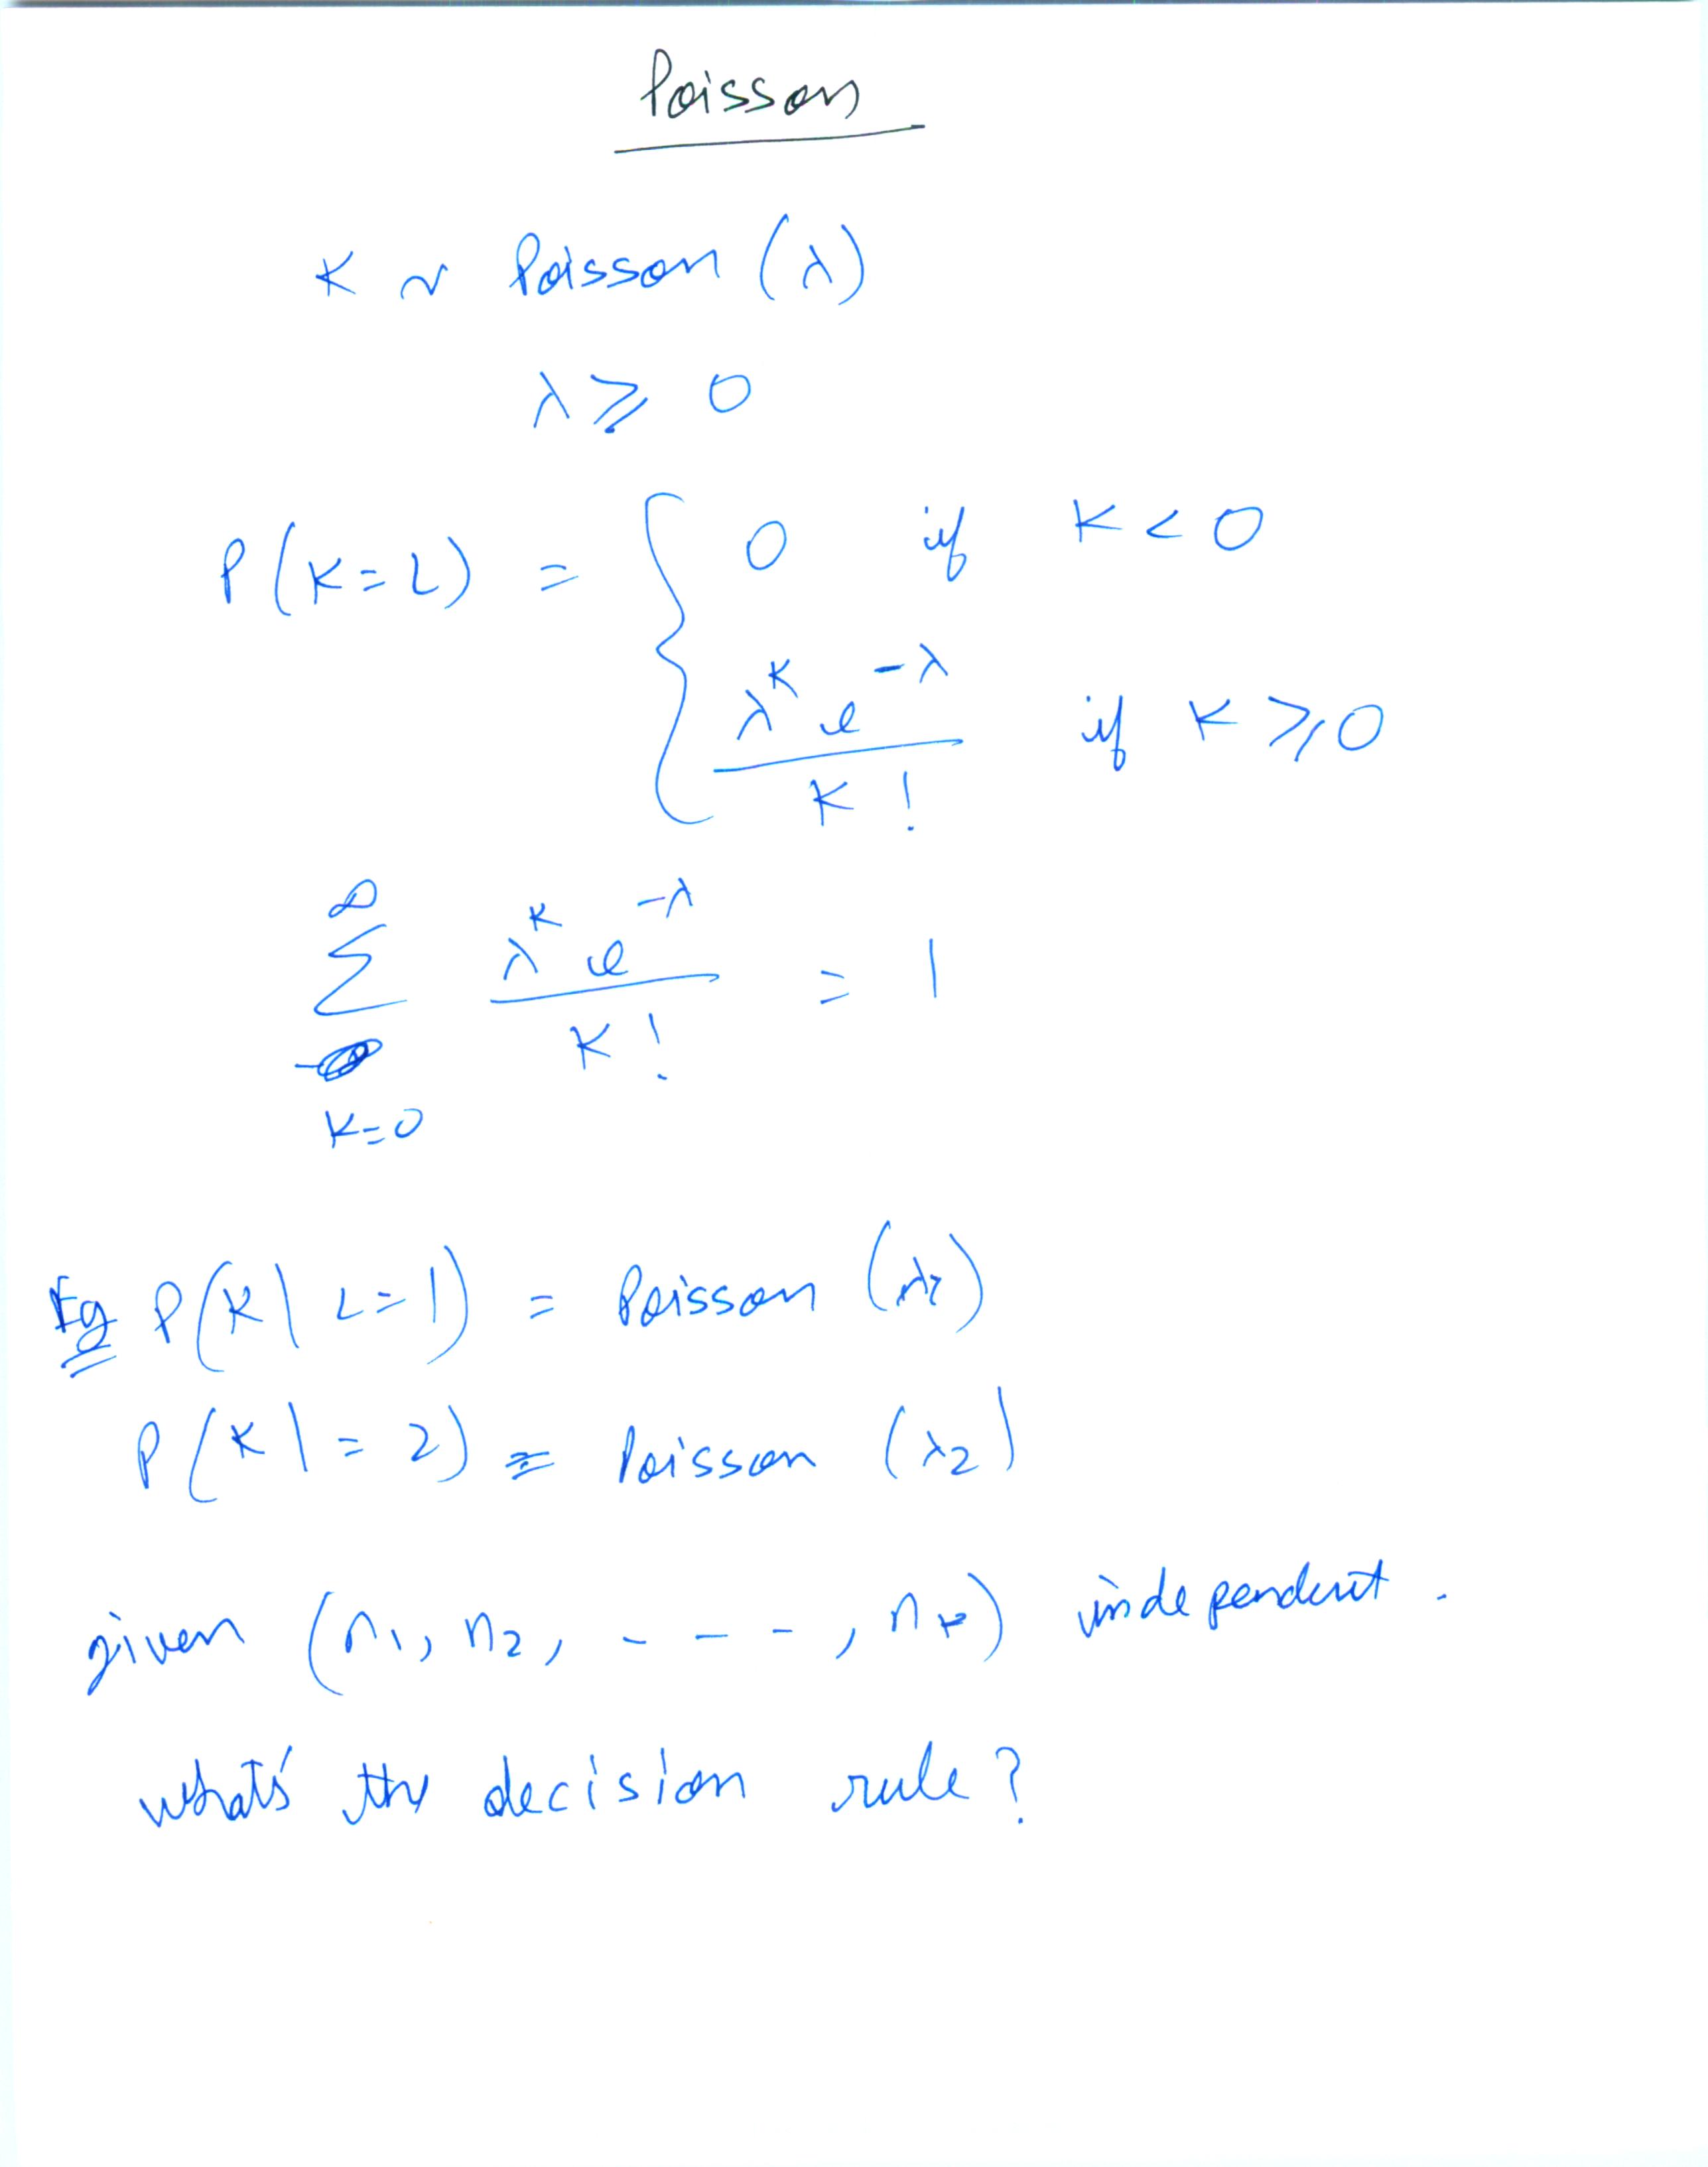 Poisson
K ~ Poisson (λ)
λ ⩾ 0
P(K=L) = { 0 if K < 0
λ^K e^-λ / K! if K ⩾ 0
∞ Σ K=0 λ^K e^-λ / K! = 1
Eg P(K| L=1) = Poisson (λ1)
P(K| = 2) = Poisson (λ2)
given (n1, n2, - - - , nK) independent .
what's the decision rule?